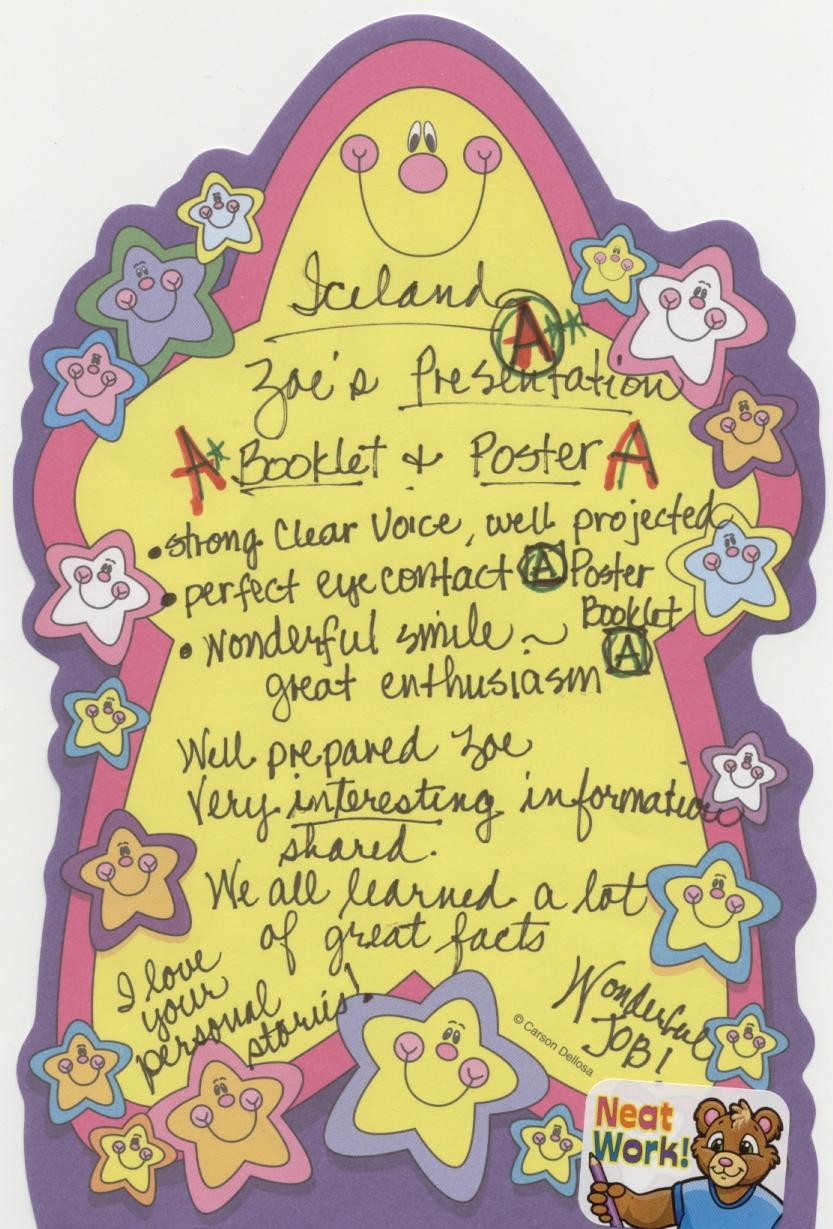 Iceland
A**
Zoe's Presentation
A* Booklet & Poster A
• strong Clear Voice, well projected
• perfect eye contact A Poster
Booklet
• Wonderful smile ~ A
great enthusiasm
Well prepared Zoe
Very interesting information
shared.
We all learned a lot
of great facts
I love
your
personal
stories!
Wonderful
JOB!
© Carson Dellosa
Neat
Work!